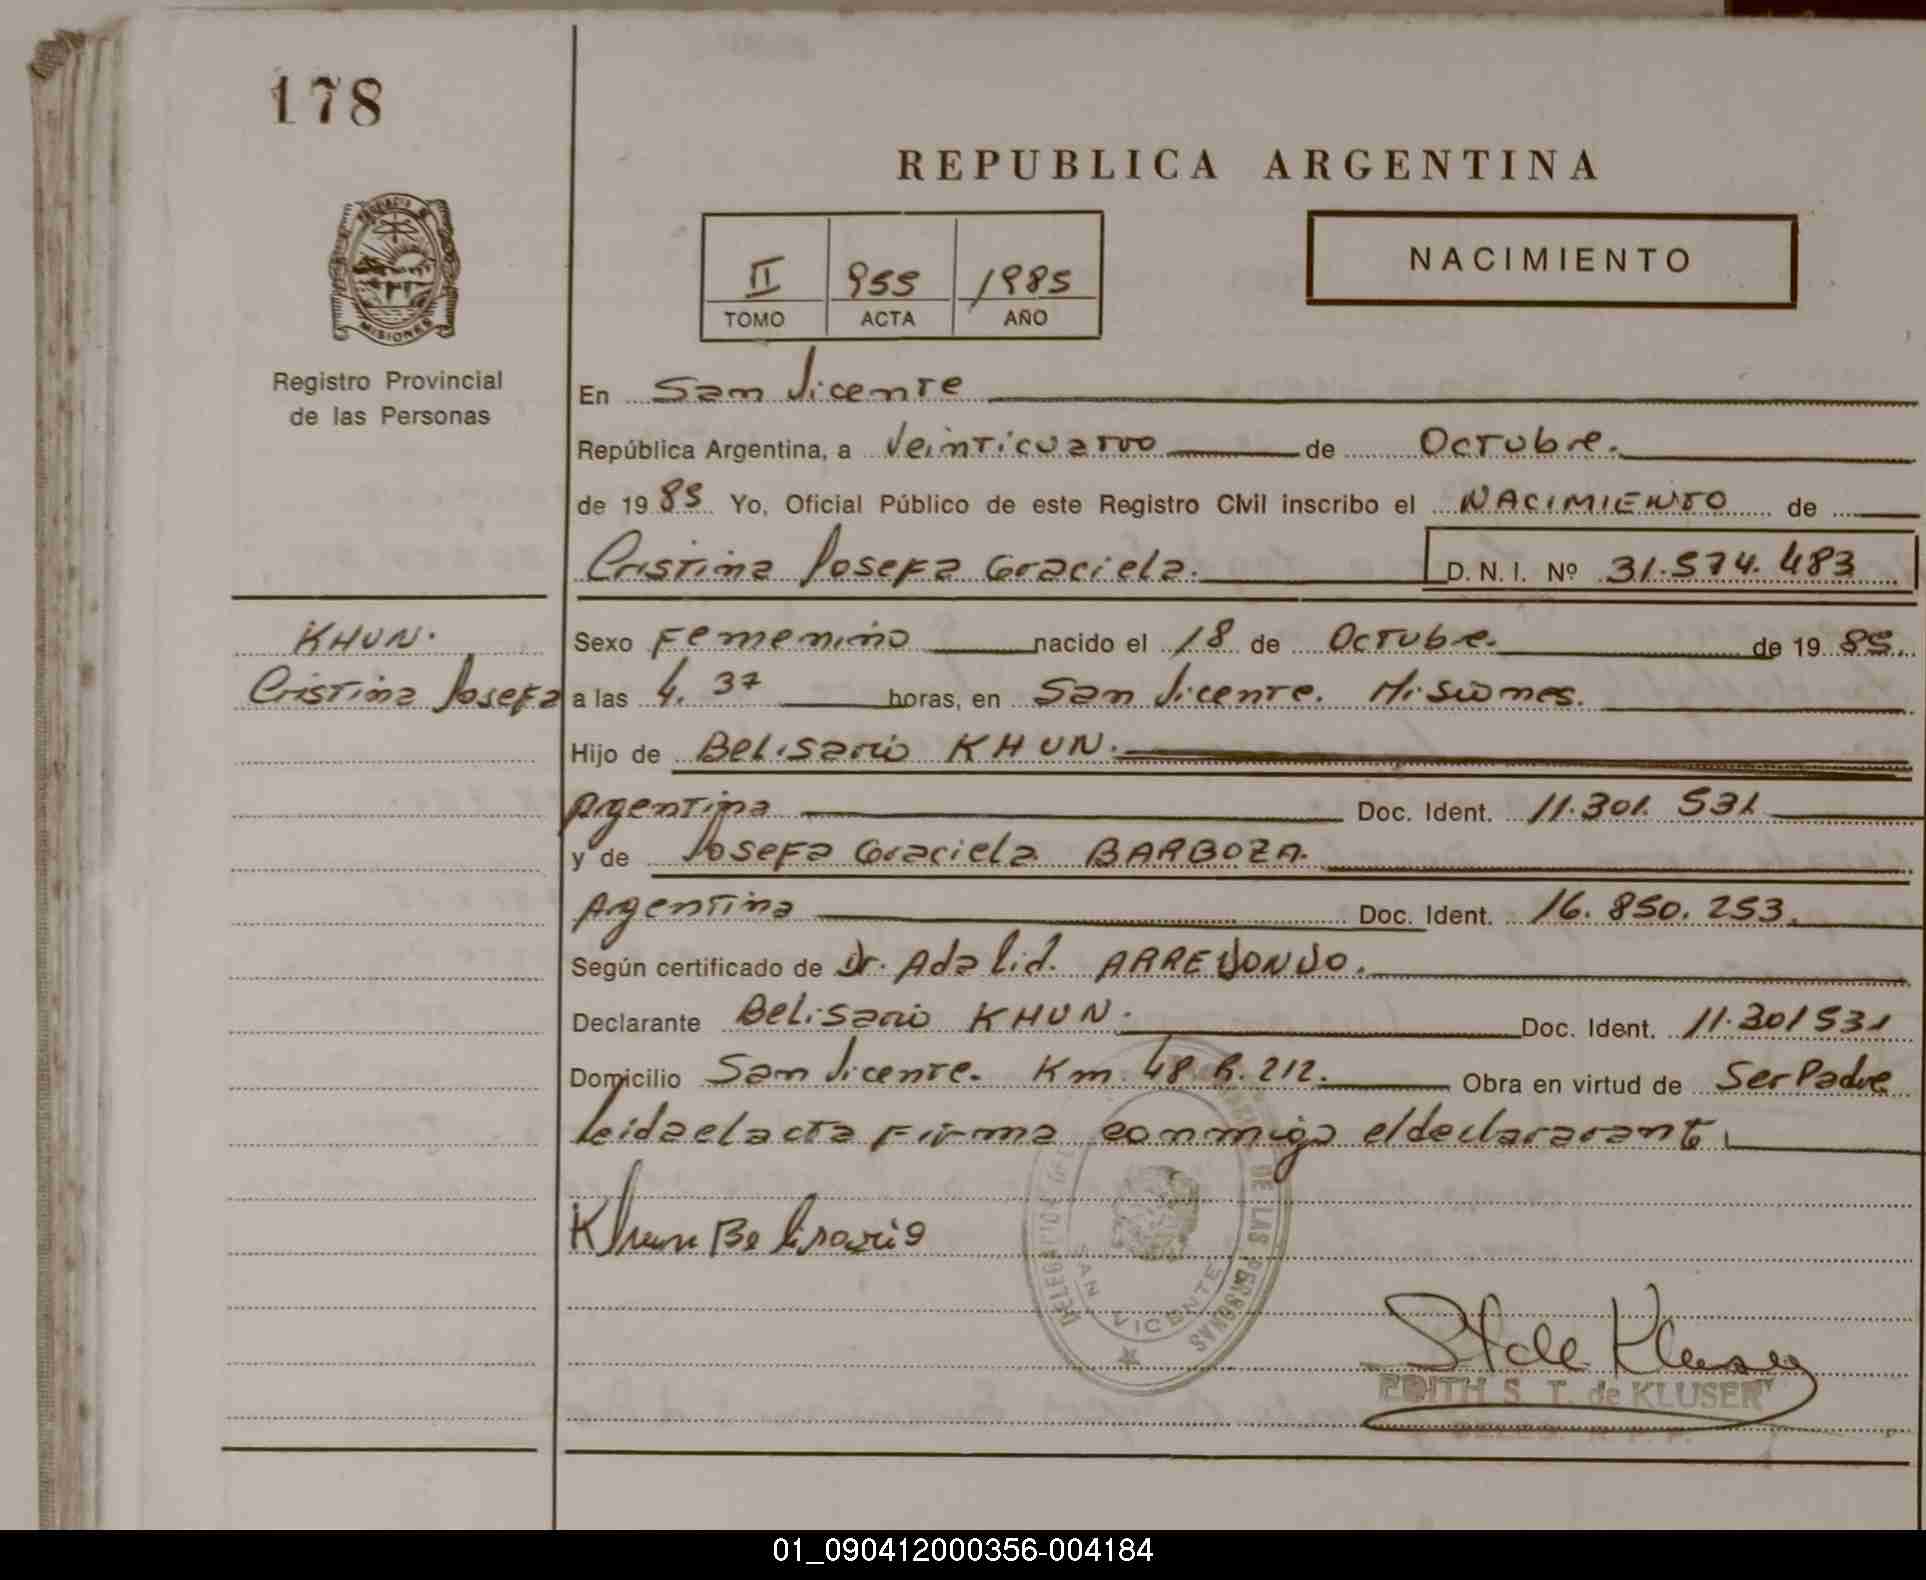 178
REPUBLICA ARGENTINA
NACIMIENTO
II 955 1985
TOMO ACTA AÑO
MISIONES
Registro Provincial
de las Personas
En San Vicente
República Argentina, a Veinticuatro de Octubre.
de 1985 Yo, Oficial Público de este Registro Civil inscribo el NACIMIENTO de
Cristina Josefa Graciela. D. N. I. Nº 31.574.483
KHUN.
Cristina Josefa
Sexo Femenino nacido el 18 de Octubre. de 1985.
a las 4.37 horas, en San Vicente. Misiones.
Hijo de Belisario KHUN.
Argentina Doc. Ident. 11.301.531
y de Josefa Graciela BARBOZA.
Argentina Doc. Ident. 16.850.253.
Según certificado de Dr. Adalid. ARREDONDO.
Declarante Belisario KHUN. Doc. Ident. 11.301531
Domicilio San Vicente. Km. 48 R. 212. Obra en virtud de Ser Padre
leida el acta Firma conmigo el declararante
Khun Belisario
DE LAS PERSONAS
SAN VICENTE
St de Kluser
EDITH S. T. de KLUSER
01_090412000356-004184